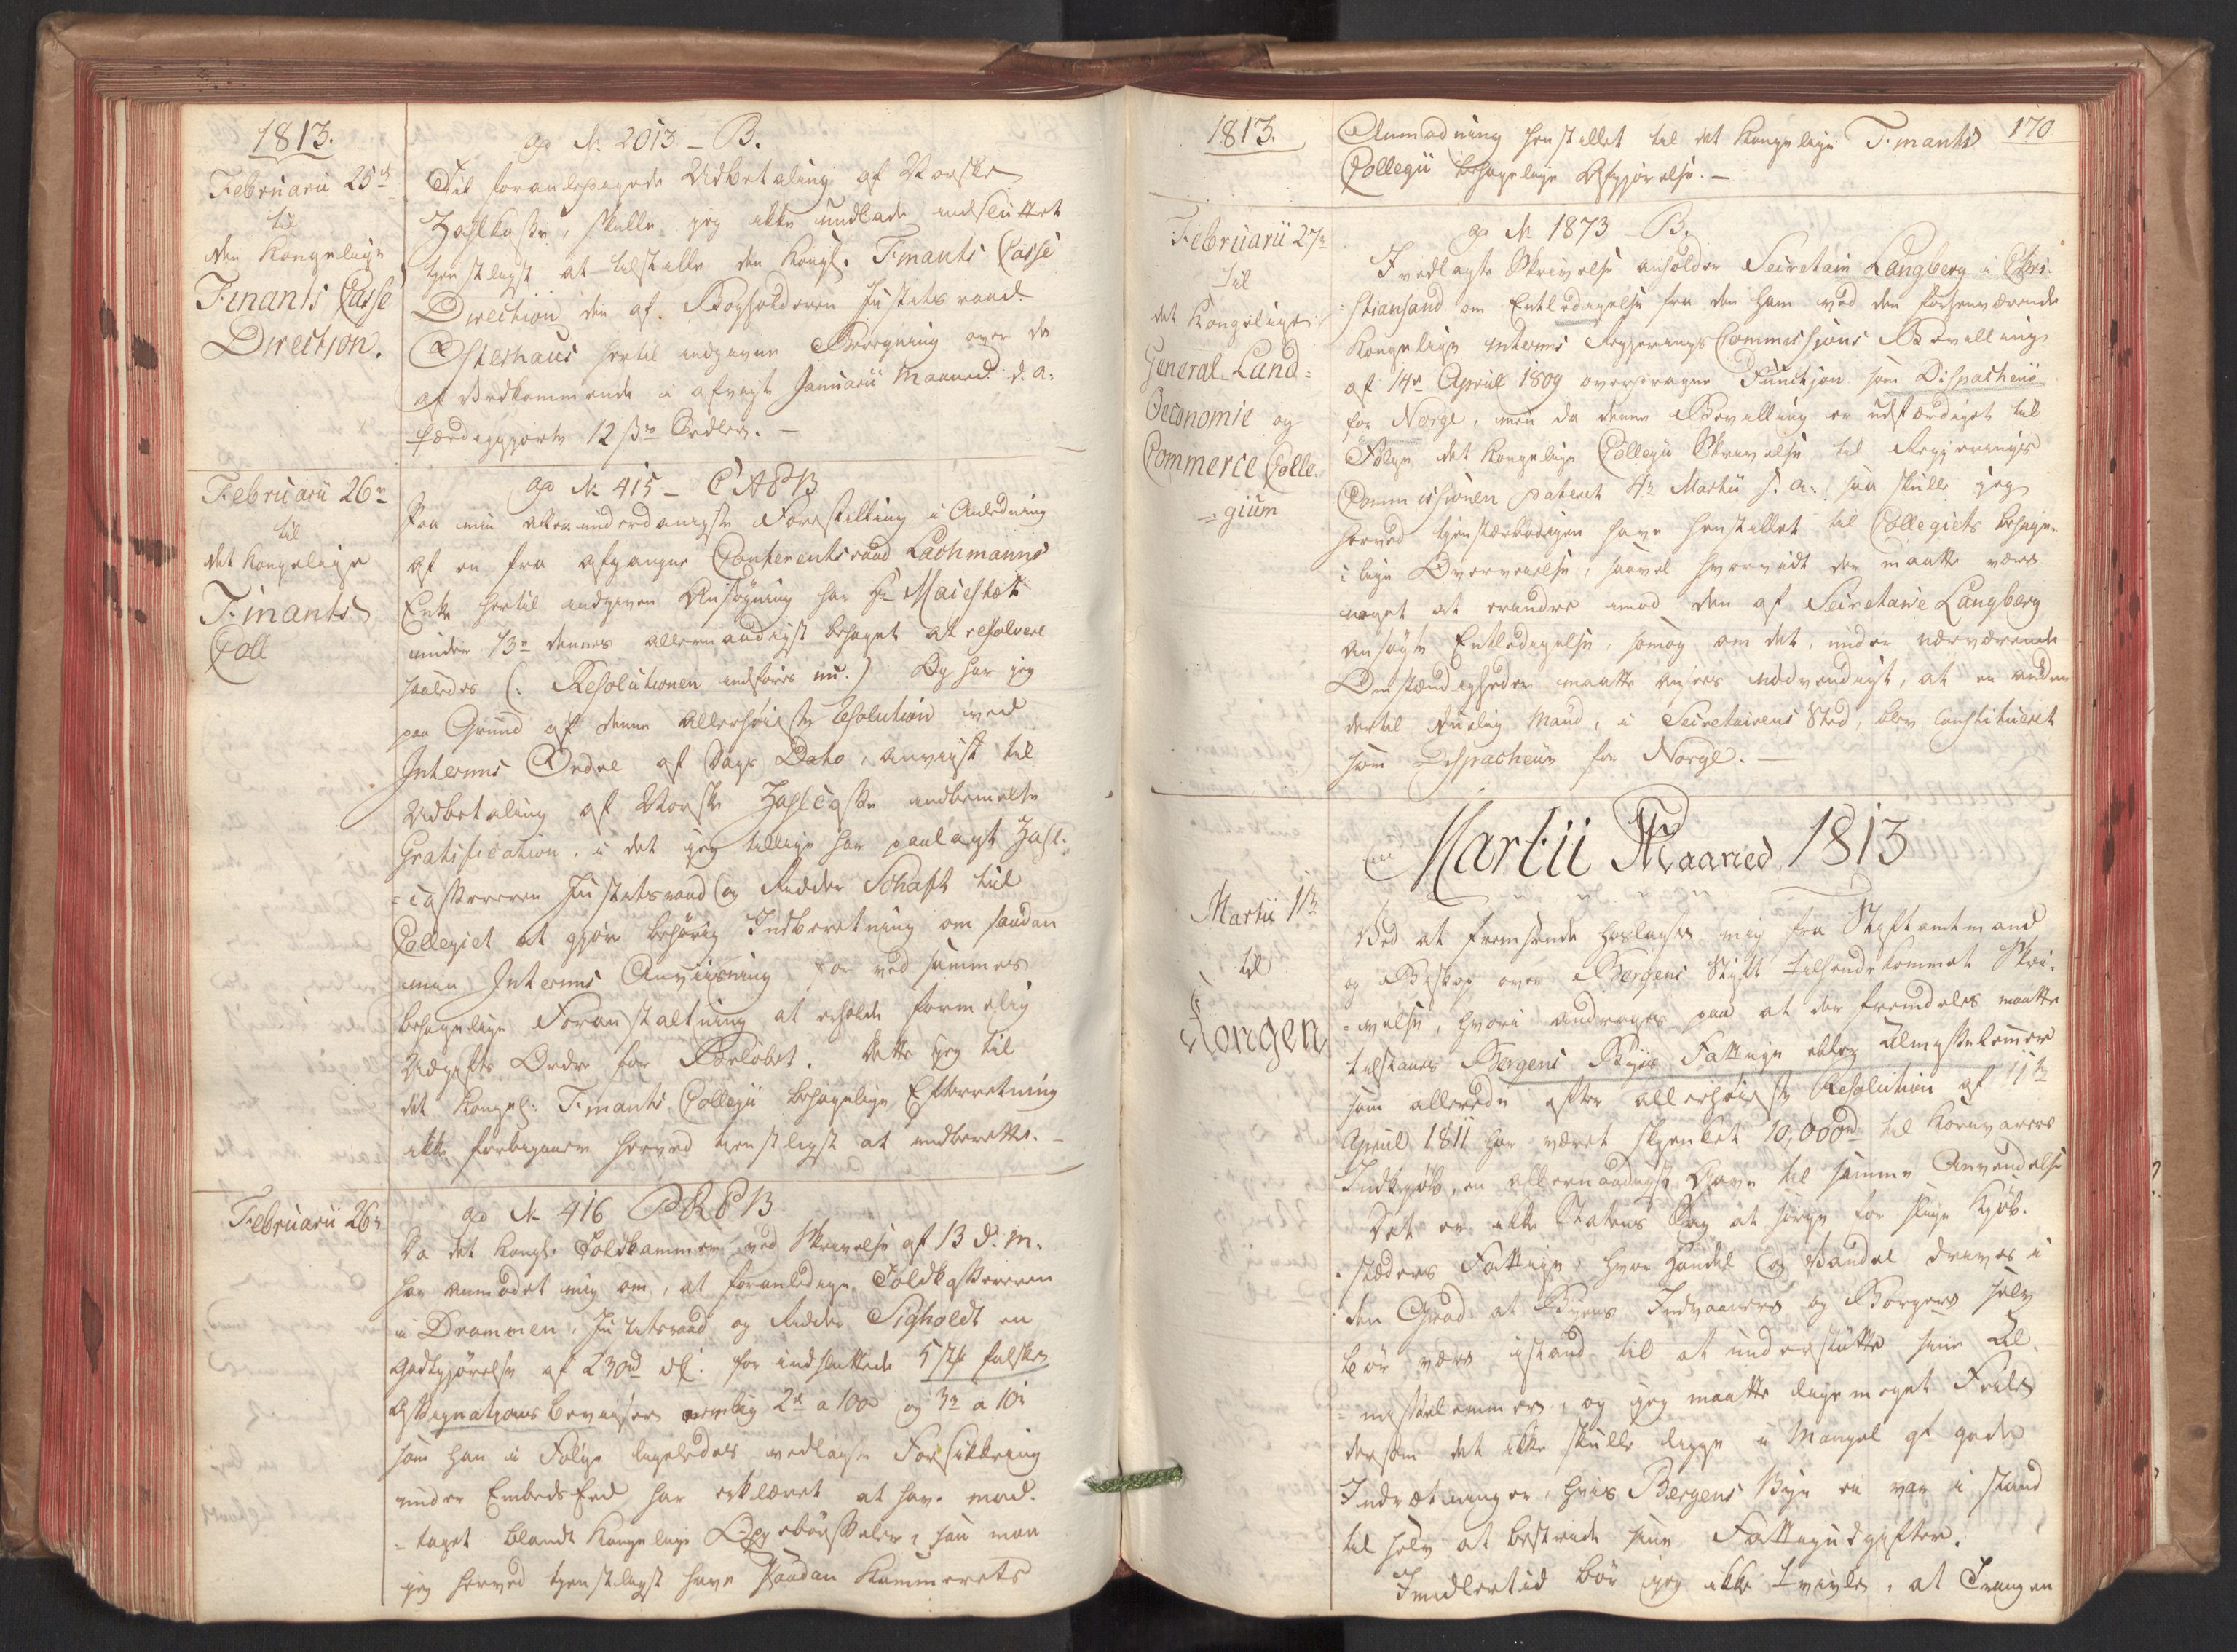 1813.
ad No 2013 – B.
Februarii 25de
til
den Kongelige
Finants Casse
Direction.
Til foranledigede Udbetaling af Norske
Zahlkasse, skulle jeg ikke undlade indsluttet
tjenstligst at tilstille den Kongl. Finants Casse
Direction den af Bogholderen Justitsraad
Osterhaus hertil indgivne Beregning over de
af Vedkommende i afvigte Januarii Maaned d. a.
færdiggjorte 12 Ordres. –
Februarii 26de
til
det Kongelige
Finants
Coll
ad No 415 –
Paa min allerunderdanigste Forestilling i Anledning
af en fra afgangne Conferentsraad Lachmanns
Enke hertil indgiven Ansøgning har Hs Majestæt
under 13de dennes allernaadigst behaget at resolvere
saaledes (: Resolutionen indføres nu.) Og har jeg
paa Grund af denne allerhøieste Resolution ved
Interims Ordre af Dags Dato, anviist til
Udbetaling af Norske Zahlcasse ommeldte
Gratification, i det jeg tillige har paalagt Zahl-
=casserer Justitsraad og Ridder Schaft til
Collegiet at gjøre behørig Indberetning om saadan
min Interims Anviisning, for ved sammes
behagelige Foranstaltning at erholde formelig
Udgifts Ordre for Beløbet. Dette jeg til
det Kongel: Finants Collegii behagelige Efterretning
ikke forbigaaer herved tienstligst at indberette. –
Februarii 26de
ad No 416
Da det Kongl. Toldkammer ved Skrivelse af 13 d. M.
har anmodet mig om, at foranledige Toldkassereren
i Drammen, Justitsraad og Ridder Sigholdt en
Godtgjørelse af 230rd for indsendte 5 Stk falske
Assignations beviiser nemlig 2de a 100 og 3de a 10
som han i Følge ligeledes vedlagte Forsikkring
under Embeds Eed har erklæret at have mod-
=taget blandt Kongelige Oppebørseler, saa maa
jeg herved tjenstligst have saadan Kammerets
1813.
170
Anmodning henstillet til det Kongelige Finants
Collegii behagelige Afgjørelse. –
Februarii 27de
til
det Kongelige
General-Land-
Oeconomie og
Commerce Colle-
=gium
ad No 1873 – B.
I vedlagte Skrivelse anholder Secretair Langberg i Chri-
=stiansand om Entledigelse fra den ham ved den forhenværende
Kongelige interims Regjerings Commissions Bevilling
af 14de April 1809 overdragne Function som Dispacheur
for Norge, men da denne Bevilling er udfærdiget til
Følge det Kongelige Collegii Skrivelse til Regjerings
Commissionen dateret 4de Martii s. a., saa skulle jeg
herved tjenstærbødigen have henstillet til Collegiets behage-
lige Overveielse, saavel hvorvidt der maatte være
noget at erindre imod den af Secretaire Langberg
ansøgte Entledigelse, somog om det, under nærværende
Omstændigheder maatte ansees nødvendigt, at en anden
dertil duelig Mand, i Secretairens Sted, blev constitueret
som Dispacheur for Norge. –
Martii Maaned 1813
Martii 1ste
til
Kongen
Ved at fremsende hoslagte mig fra Stiftamtmand
og Biskop over Bergens Stift tilhændekommet Skri-
=velse, hvori andrages paa at der fremdeles maatte
tilstaaes Bergens Byes Fattige eller Almisselemmer
som allerede efter allerhøieste Resolution af 11te
April 1811 har været skjenket 10,000rd til Kornvarers
Indkjøb, en allernaadigst Gave til samme Anvendelse
Det er ikke Statens Sag at sørge for slige Kjøb-
=stæders Fattige, hvor Handel og Vandel drives i
den Grad at Byens Indvaanere og Borgere selv
bør være istand til at understøtte sine Al-
=misselemmer, og jeg maatte lige meget Feile
dersom det ikke skulle ligge i Mangel af gode
Indretninger, hvis Bergens Bye ei var i stand
til selv at bestride sine Fattigudgifter.
Imidlertid bør jeg ikke tvivle, at Trangen